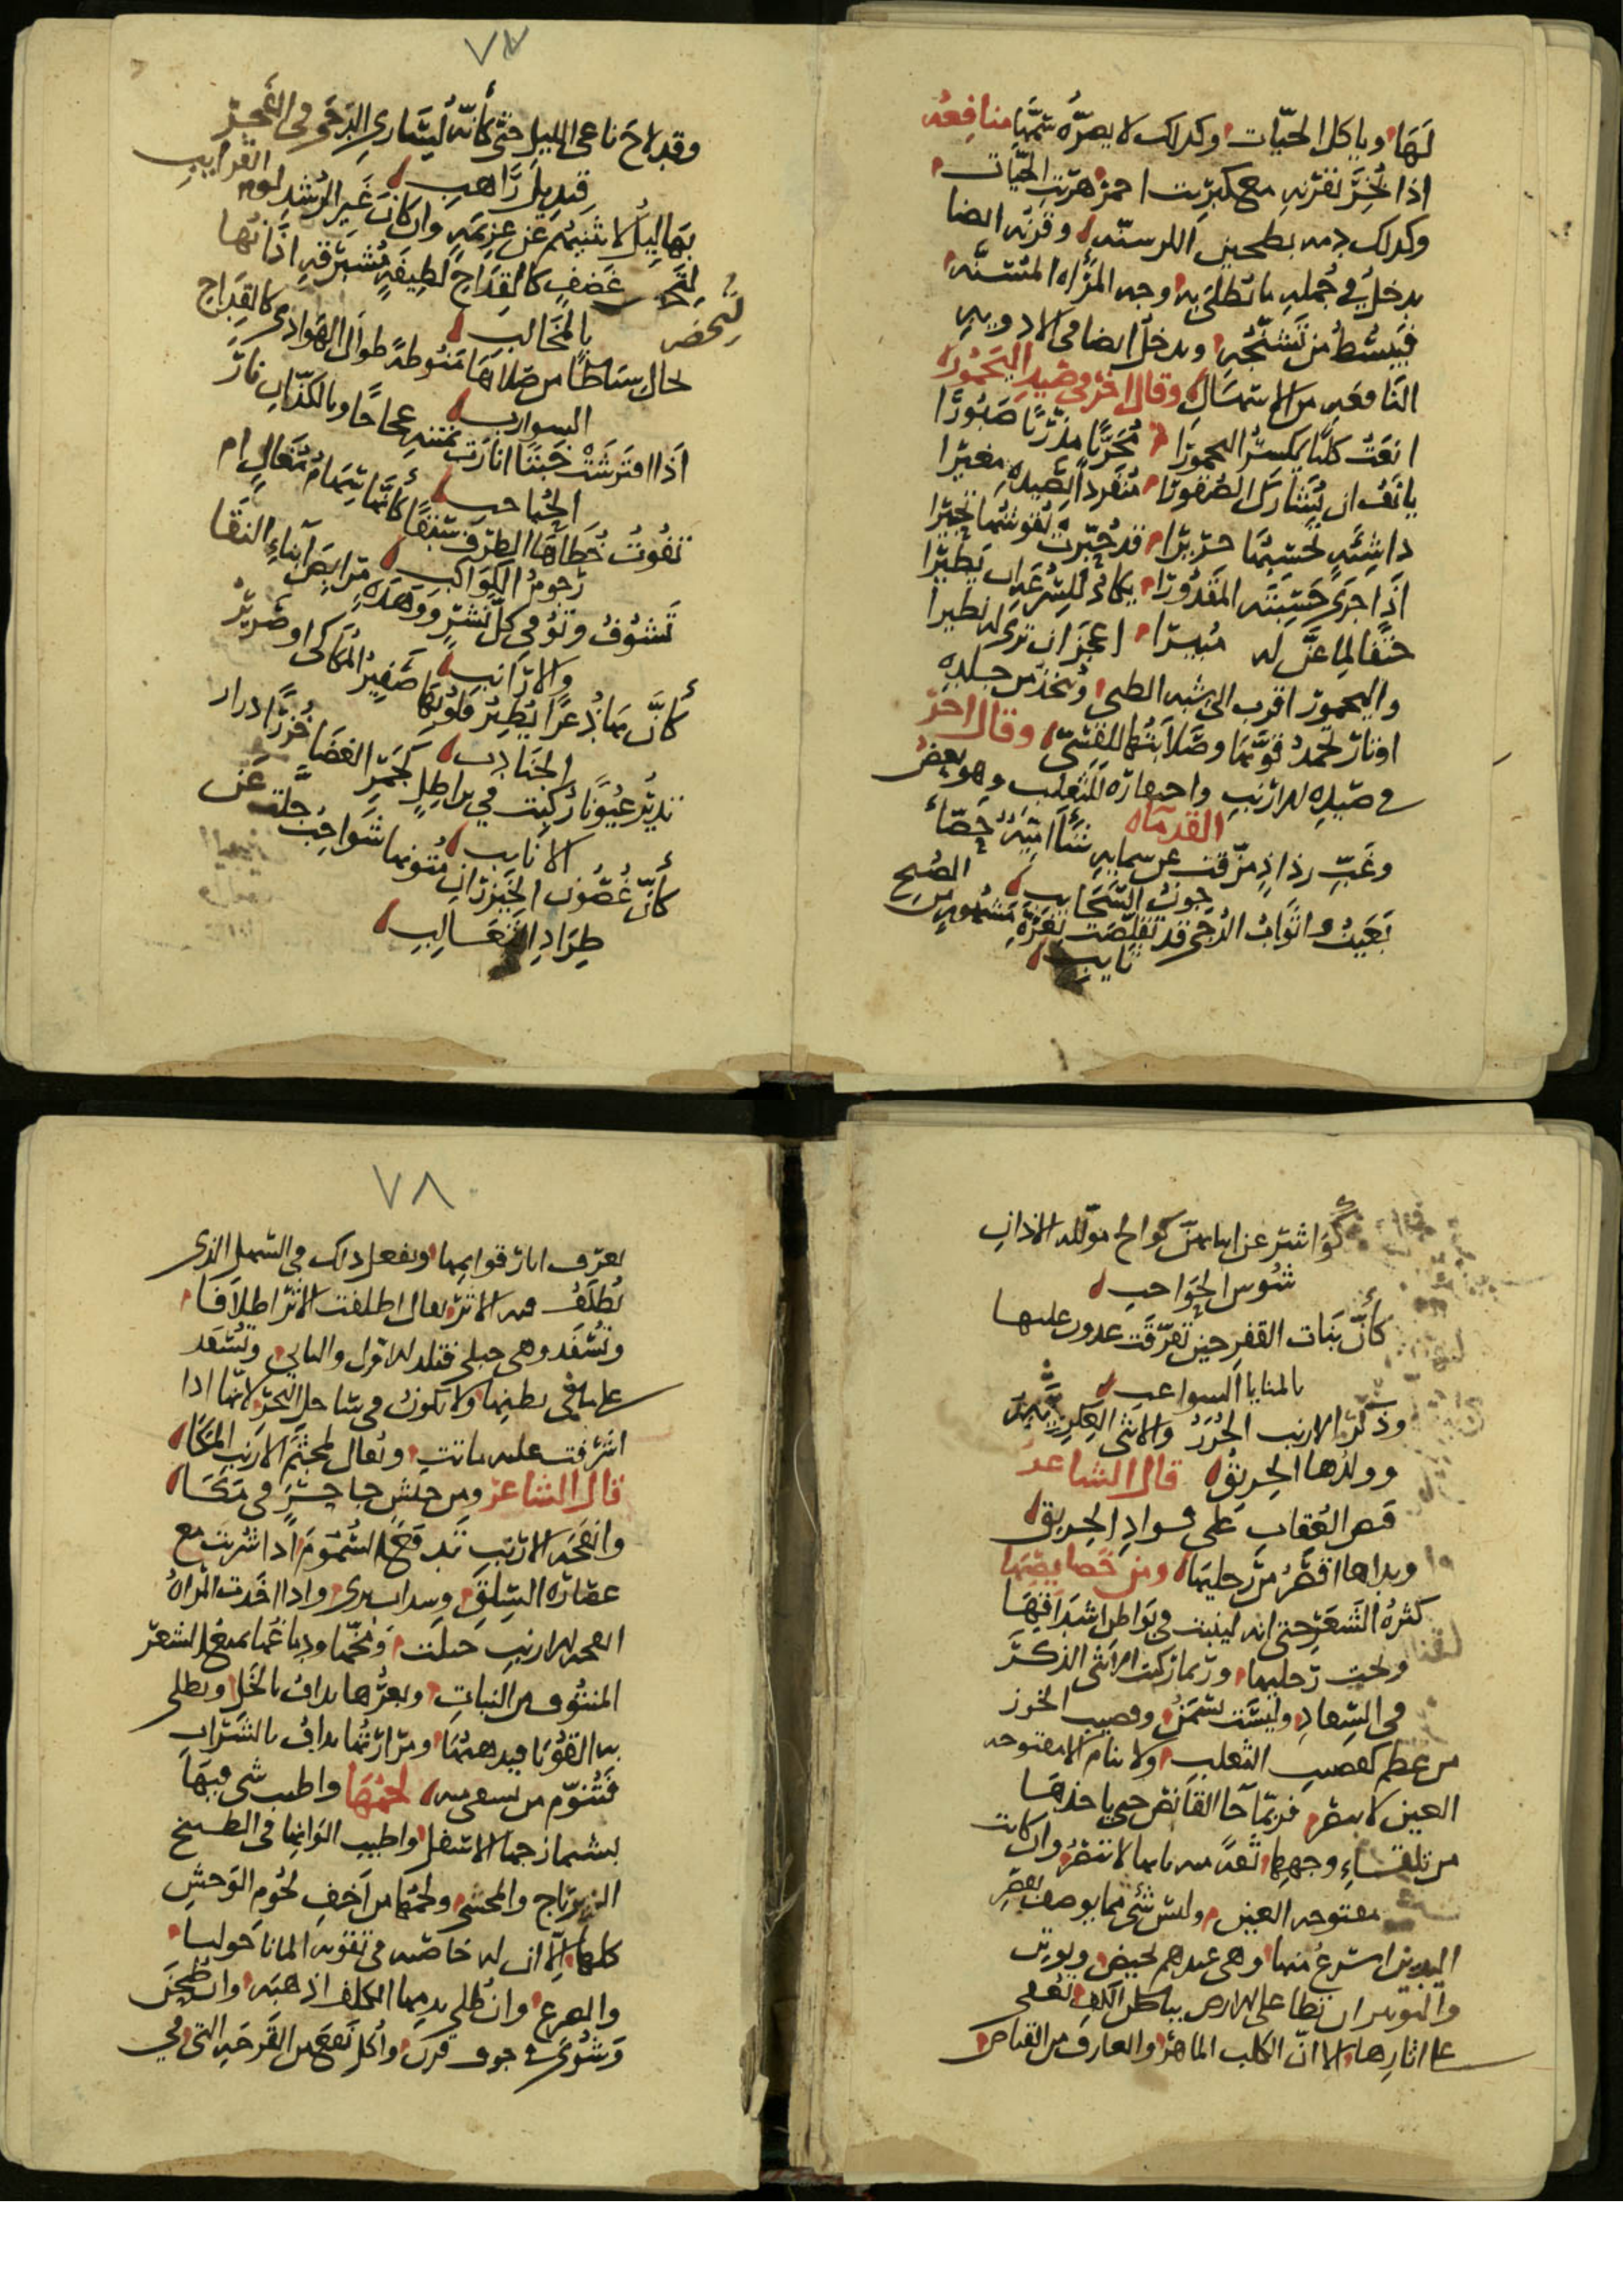 لَهَا وياكل الحيّات وكذلك لا يضرّه سمّها منافعه
اذا بُخّر بقرنه مع كبريت احمر هربت الحيّات
وكذلك دمه بطحين الكرسنه وقرنه ايضا
يدخل في جُمله ما تُطلَى به وجه المرأه المتشنّه
فيبسُط من تشنّجه ويدخل ايضا في الادويه
النافعه من الاسهال وقال اخر في صيد اليَحْمُور
انعَتُ كلبًا يكسر اليحمورا مُجرّبا مدرّبًا صَبُورَا
يانَفُ ان يُشارك الصقورا منفردًا بصيده مغيرا
اذا جرى حسبته المقدورا يكاد للسرعه ان يطيرا
حتفا لما عنّ له مُبيرا اعجز ان ترى له نظيرا
واليحمور اقرب الى شبه الظبى وتتخذ من جلده
اوتار تُحمد قوّتها وصَلابتُها للقسىّ وقال اخر
في صَيدِه للارنب واحضاره للثعلب وهو بعض
القدماء
وغَبّ رذاذٍ مزّقت عن سمايه
جونُ السَّحَايب
بَعَيتُ واثوابُ الدُجى قد تقلّصَت لغرّةِ مشهور من الصُبح
ثايب
٧٧
وقد لاحَ ناعى الليل حتى كأنّه لِسَارى الدجَى فى الفجرِ
قنديل رَاهب
بهَاليلُ لا تثنيهُم عن عزيمةٍ وان كانَ غير الرُشدِ لوم القرايبِ
لتحضر غضفٍ كالقِدَاح لطيفةٍ مُشرقة اذانُها
بالمخَالبِ
تخال سِيَاطا من صَلاهَا مَنُوطةً طوال الهوادى كالقداح
السوارب
اذا افترشَتْ خَبتًا اثارَت بمتنه عجاجًا وبالكذّان نارَ
الحُباحب
تَفُوت خُطَاهَا الطرفَ سَبقًا كأنّها سِهَامُ مُغَالٍ ام
رَجُومُ الكواكب
تَشوف وتُوفى كلّ نشزٍ ووَهدَةٍ مَرابِضَ ابناءِ النقَا
والارَانبِ
كأنّ بها ذُعرًا يُطِيرُ قلوبَها صَفيرُ المُكاكى او صَريرُ
الجنادب
تدير عُيونًا رُكّبت فى براطِلٍ كجَمْر الغضَا خُزرًا ذراب
الانايب
كأنّ غُصُون الخيزرانِ مُتونها شَواحِبُ حلّت عَن
طِرَادِ الثعَالِب
كواشر عن انيابهنّ كوالح مولّلة الاذانِ
شُوسِ الحَواجبِ
كأنّ بَنات القفرِ حين تفرّقَت عدون عليها
بالمنايا السواعب
وذكر الارنب الخُزَزُ والانثى العكرشه
وولدُها الخِرنِقُ قال الشاعر
قبص العُقاب على فوادِ الخِرنقِ
ويداها اقصَرُ من رِجليهَا ومن خَصايصِهَا
كثرةُ الشَعَر حتى انه لينبت فى بَواطِن اشدَاقِهَا
وتحت رِجليها وربما ركبت الانثى الذكرَ
فى السّفاد وليسَت تسمَنُ وقضيب الخزز
من عظم كقضيب الثعلب ولا تنام الا مفتوحه
العين لا تبصر فربّما جآ القانص حتى ياخذهَا
من تلقاءِ وجههَا ثقةً منه بانها لا تبصرُ وان كانت
مفتوحه العين وليس شئ مما يوصف بقصر
اليدين اسرعُ منها وهى عندهم تحيض وتوبّر
والتوبير ان تطا على الارض بباطن الكف تُعفى
على اثارها الا انّ الكلب الماهر والعارف من القناص
٧٨
يعرف اثار قوايمها وتفعل ذلك فى السهل الذى
تُطلَقُ فيه الاثر يقال اطلقت الاثر اطلاقا
وتُسفَد وهى حبلى فتلد للاول والثانى وتُسفَد
على ما فى بطنها ولا تكون فى ساحل البحر لانها اذا
اشرفت عليه ماتت ويقال لمجثم الارنب المَكَا
قال الشاعر ومن حنش جاحرٍ فى مَكَا
وانفَحَةُ الارنب تدفع السُمُوم اذا شُربت مع
عصَارة السِلق وسداب برى واذا اخذت المراهُ
انفحه الارنب حبلت ومُخّها ودماغُها يمنع الشعر
المنتُوف من النبات وبعرُها يداف بالخَلّ ويطلى
به القُوبَا فيدهبُهَا ومرارتُها يدافُ بالشرابِ
فتُنوّم من يسعى منه لحمُهَا واطيب شى فيهَا
لشيمازجها الاسفل واطيب الوانها فى الطبيخ
الزيرباج والمحشى ولحمُها من اخفِ لحُوم الوَحشِ
كلها الّا ان له خاصّيه فى تقويه المالنخوليا
والصرع وان طُلى بدمها الكلف اذهبَه وان طُحنَ
وشُوىَ فى جوف قرن واُكل نفعَ من القَرحَه التى فى